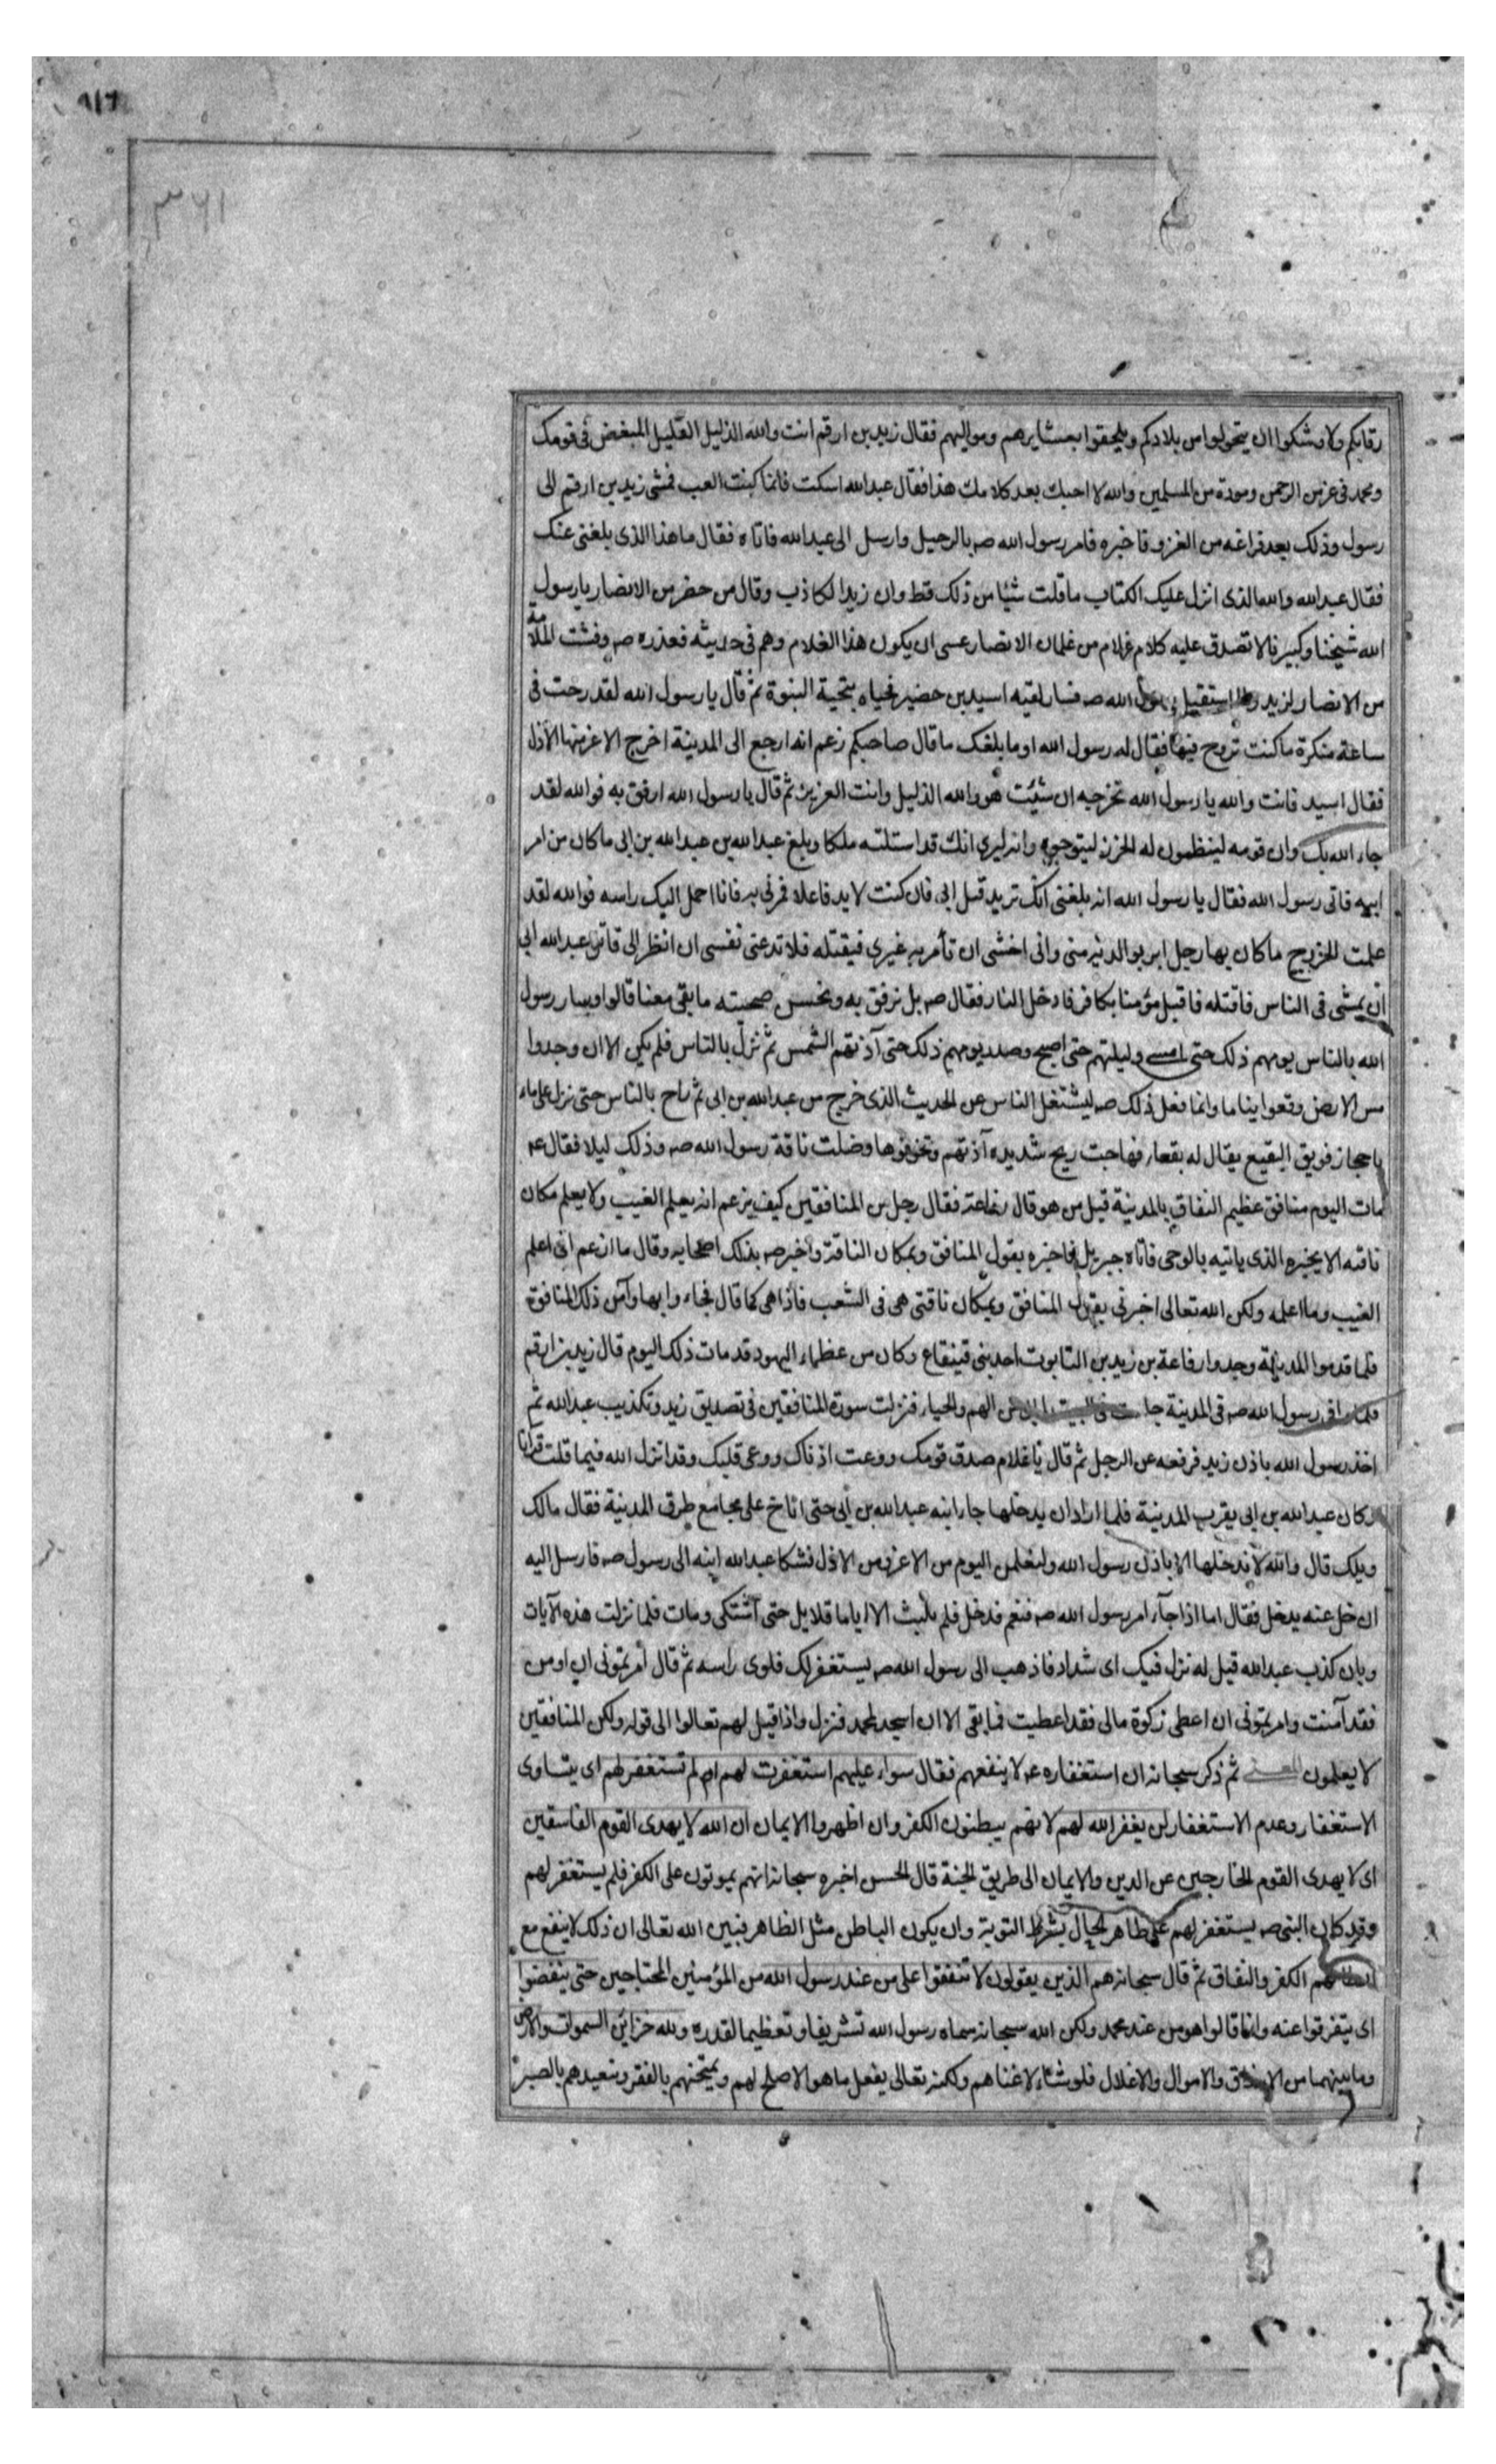 ٣٦١
رقابكم ولاوشكوا ان يتحولوا من بلادكم ويلحقوا بعشايرهم ومواليهم فقال زيد بن ارقم انت والله الذليل القليل المبغض فى قومك
ومحمد فى عز من الرحمن ومودة من المسلمين والله لا احبك بعد كلامك هذا فقال عبد الله اسكت فانما كنت العب فمشى زيد بن ارقم الى
رسول وذلك بعد فراغه من الغزو فاخبره فامر رسول الله صه بالرحيل وارسل الى عبد الله فاتاه فقال ما هذا الذى بلغنى عنك
فقال عبد الله والله الذى انزل عليك الكتاب ما قلت شيئا من ذلك قط وان زيدا لكاذب وقال من حضر من الانصار يا رسول
الله شيخنا وكبيرنا لا تصدق عليه كلام غلام من غلمان الانصار عسى ان يكون هذا الغلام وهم فى حديثه فعذره صه وفشت الملامة
من الانصار لزيد ولما استقبل رسول الله صه فسار لقيه اسيد بن حضير فحياه بتحية النبوة ثم قال يا رسول الله لقد رحت فى
ساعة منكرة ما كنت تروح فيها فقال له رسول الله او ما بلغك ما قال صاحبكم زعم انه ارجع الى المدينة اخرج الاعز منها الاذل
فقال اسيد فانت والله يا رسول الله تخرجه ان شئت هو والله الذليل وانت العزيز ثم قال يا رسول الله ارفق به فوالله لقد
جاء الله بك وان قومه لينظمون له الخرز ليتوجوه وانه ليرى انك قد استلبته ملكا وبلغ عبد الله بن عبد الله بن ابى ما كان من امر
ابيه فاتى رسول الله فقال يا رسول الله انه بلغنى انك تريد قتل ابى فان كنت لا بد فاعلا فمرنى به فانا احمل اليك راسه فوالله لقد
علمت الخزرج ما كان بها رجل ابر بوالديه منى وانى اخشى ان تأمر به غيرى فيقتله فلا تدعنى نفسى ان انظر الى قاتل عبد الله ابى
ان يمشى فى الناس فاقتله فاقتل مؤمنا بكافر فادخل النار فقال صه بل نرفق به ونحسن صحبته ما بقى معنا قالوا وسار رسول
الله بالناس يومهم ذلك حتى امسى وليلتهم حتى اصبح وصدر يومهم ذلك حتى آذتهم الشمس ثم نزل بالناس فلم يكن الا ان وجدوا
مس الارض وقعوا نياما وانما فعل ذلك صه ليشتغل الناس عن الحديث الذى خرج من عبد الله بن ابى ثم راح بالناس حتى نزل على ماء
باحجاز فويق البقيع يقال له بقعاء فهاجت ريح شديدة آذتهم وتخوفوها وضلت ناقة رسول الله صه وذلك ليلا فقال عه
مات اليوم منافق عظيم النفاق بالمدينة قيل من هو قال رفاعة فقال رجل من المنافقين كيف يزعم انه يعلم الغيب ولا يعلم مكان
ناقته الا يخبره الذى ياتيه بالوحى فاتاه جبريل فاخبره بقول المنافق وبمكان الناقة واخبر صه بذلك اصحابه وقال ما ازعم انى اعلم
الغيب وما اعلمه ولكن الله تعالى اخبرنى بقول المنافق وبمكان ناقتى هى فى الشعب فاذا هى كما قال فجاء وا بها وآمن ذلك المنافق
فلما قدموا المدينة وجدوا رفاعة بن زيد بن التابوت احد بنى قينقاع وكان من عظماء اليهود قد مات ذلك اليوم قال زيد بن ارقم
فلما وافى رسول الله صه فى المدينة جلست فى البيت لما بى من الهم والحياء فنزلت سورة المنافقين فى تصديق زيد وتكذيب عبد الله ثم
اخذ رسول الله باذن زيد فرفعه عن الرحل ثم قال يا غلام صدق فوك ووعت اذناك ووعى قلبك وقد انزل الله فيما قلت قرانا
وكان عبد الله بن ابى بقرب المدينة فلما اراد ان يدخلها جاء ابنه عبد الله بن ابى حتى اناخ على مجامع طرق المدينة فقال مالك
ويلك قال والله لا تدخلها الا باذن رسول الله ولتعلمن اليوم من الاعز من الاذل فشكا عبد الله ابنه الى رسول صه فارسل اليه
ان خل عنه يدخل فقال اما اذا جاء امر رسول الله صه فنعم فدخل فلم يلبث الا اياما قلايل حتى اشتكى ومات فلما نزلت هذه الآيات
وبان كذب عبد الله قيل له نزل فيك اى شداد فاذهب الى رسول الله صه يستغفر لك فلوى راسه ثم قال أمرتمونى ان اومن
فقد آمنت وامرتمونى ان اعطى زكوة مالى فقد اعطيت فما بقى الا ان اسجد لمحمد فنزل واذا قيل لهم تعالوا الى قوله ولكن المنافقين
لا يعلمون المعنى ثم ذكر سبحانه ان استغفاره عه لا ينفعهم فقال سواء عليهم استغفرت لهم ام لم تستغفر لهم اى يتساوى
الاستغفار وعدم الاستغفار لن يغفر الله لهم لانهم يبطنون الكفر وان اظهروا الايمان ان الله لا يهدى القوم الفاسقين
اى لا يهدى القوم الخارجين عن الدين والايمان الى طريق الجنة قال الحسن اخبره سبحانه انهم يموتون على الكفر فلم يستغفر لهم
وقد كان النبى صه يستغفر لهم على ظاهر الحال بشرط التوبة وان يكون الباطن مثل الظاهر فبين الله تعالى ان ذلك لا ينفع مع
ابطانهم الكفر والنفاق ثم قال سبحانه هم الذين يقولون لا تنفقوا على من عند رسول الله من المؤمنين المحتاجين حتى ينفضوا
اى يتفرقوا عنه وانما قالوا هو من عند محمد ولكن الله سبحانه سماه رسول الله تشريفا وتعظيما لقدره ولله خزائن السموات والارض
وما بينهما من الارزاق والاموال والاغلال فلو شاء لاغناهم ولكنه تعالى يفعل ما هو الاصلح لهم ويمتحنهم بالفقر وتعبدهم بالصبر